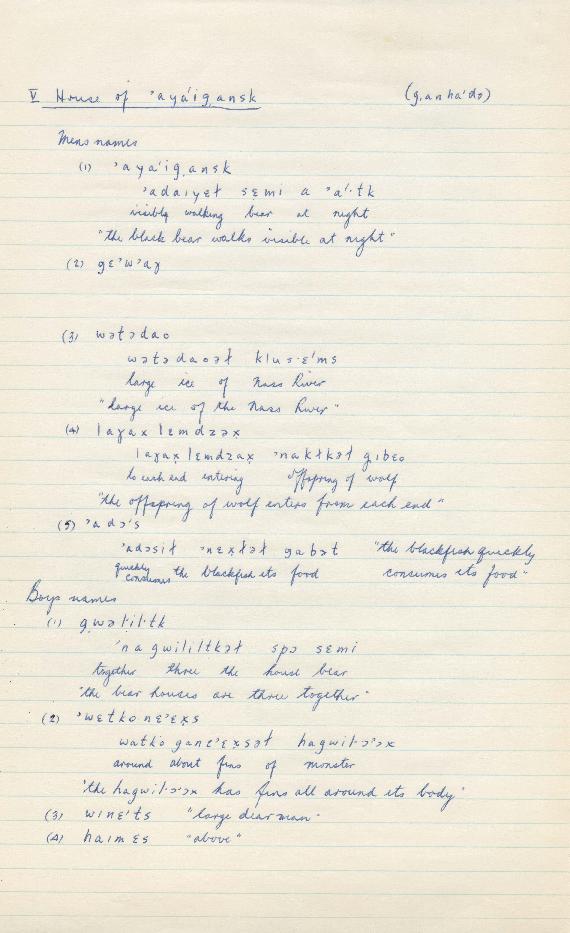 V House of 'ayá'ig̣ansk (g̣anha'dɔ)
Mens names
(1) 'aya'ig̣ansk
'adaıyɛɫ sɛmi a 'a'·tk
visibly walking bear at night
"the black bear walks visible at night"
(2) gɛ'w'aɣ
(3) wətədao
wətədaoəɫ klus·ɛ'ms
large ice of Nass River
"large ice of the Nass River"
(4) laɣax lɛmdzəx
laɣax̣ lɛmdzax 'nakɫkəɫ g̣ıbɛo
to each end entering offspring of wolf
"the offspring of wolf enters from each end"
(5) 'adɔ's
'adɔsiɫ 'nɛx̣ɫəɫ gabət "the blackfish quickly
quickly consumes the blackfish its food consumes its food"
Boys names
(1) g̣wəl·il·tk
'nagwililtkəɫ spɔ sɛmi
together three the house bear
"the bear houses are three together"
(2) 'wɛtko nɛ'ɛx̣s
watk'o ganɛ'ɛx̣səɫ hagwil·ɔ'ɔx
around about fins of monster
"the hagwil·ɔ'ɔx has fins all around its body"
(3) winɛ'ts "large dear man"
(4) haımɛs "above"